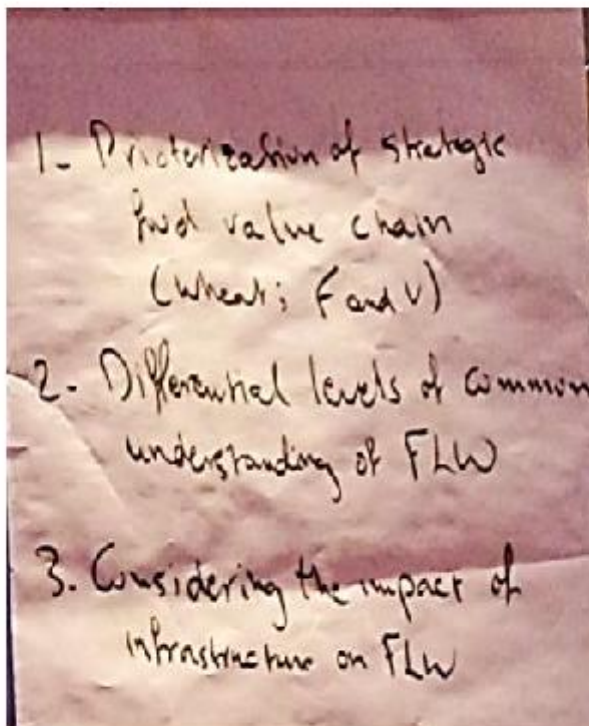 1- Prioterization of strategic
food value chain
(wheat; F and V)
2- Differential levels of common
understanding of FLW
3. Considering the impact of
infrastructure on FLW